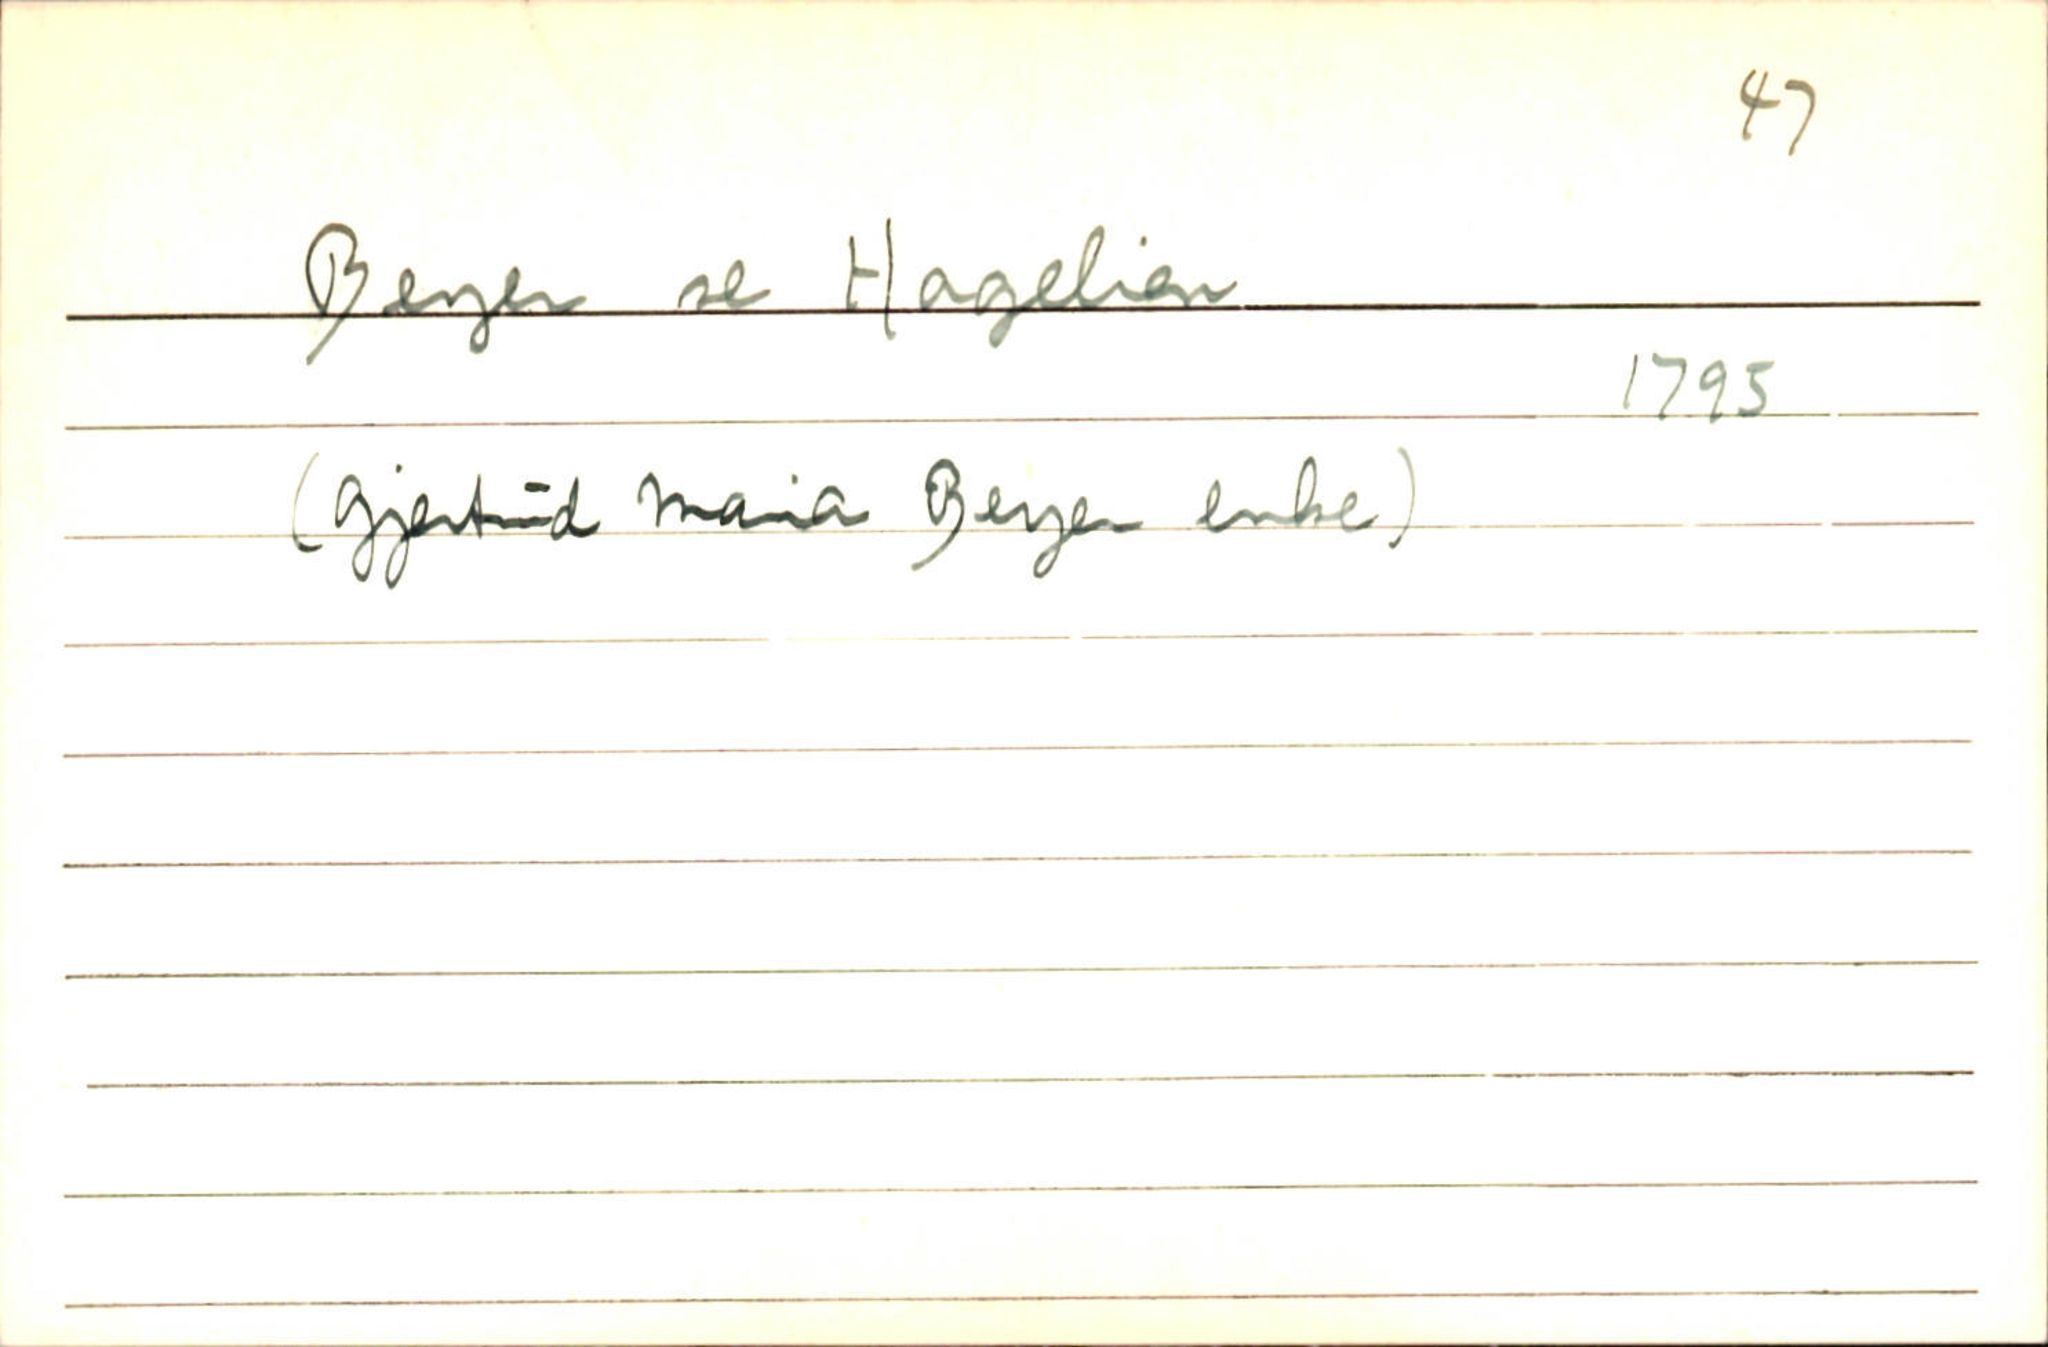 47
Beyer se Hagelien
1795
(Gjertrud Maria Beyer enke)